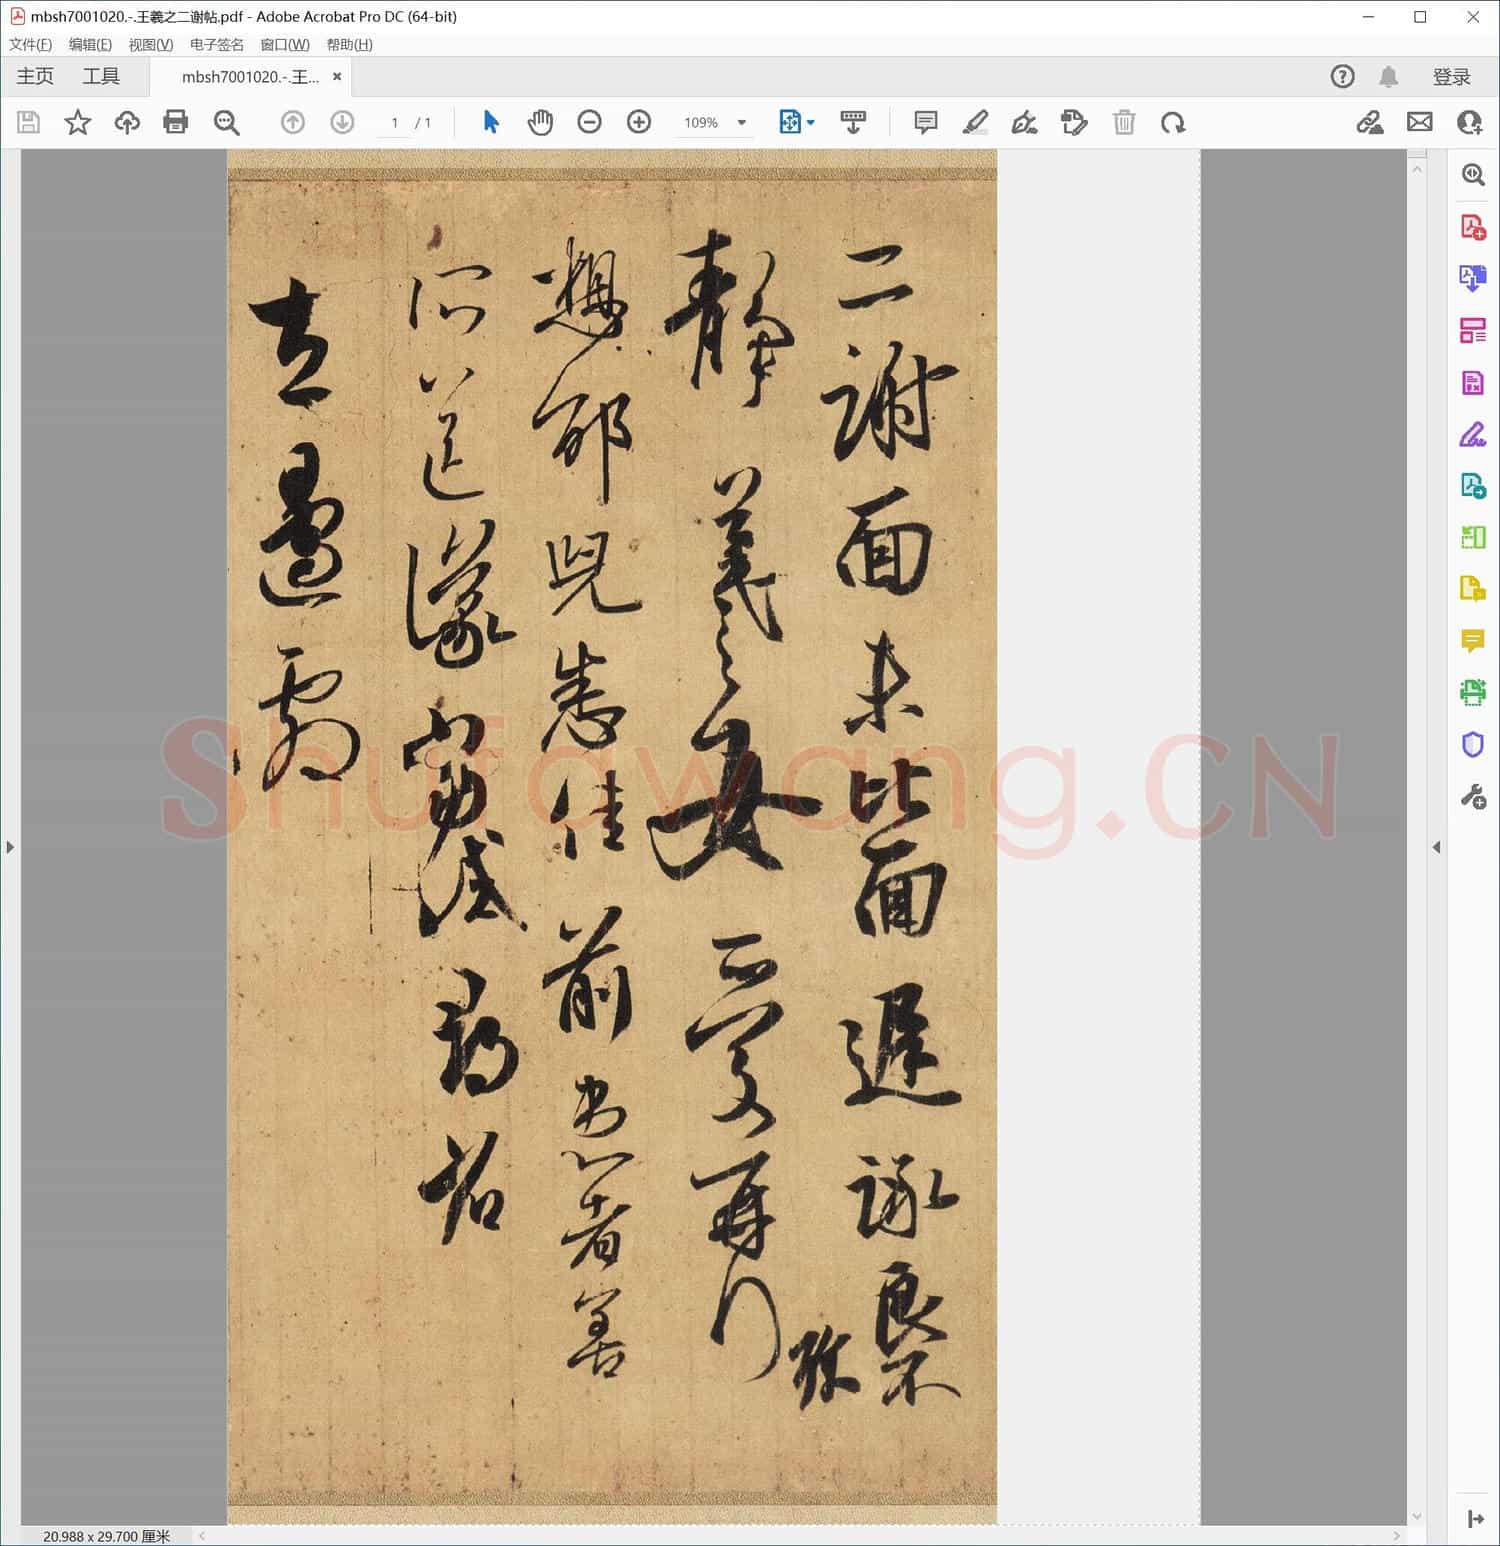 mbsh7001020.-.王羲之二谢帖.pdf - Adobe Acrobat Pro DC (64-bit)
文件(F) 编辑(E) 视图(V) 电子签名 窗口(W) 帮助(H)
主页 工具 mbsh7001020.-.王... × 登录
1 / 1 109%
二謝面未比面遲詠良不
靜羲之女愛再行
想邰兒悉佳前患者善
所送議當試尋省
左邊劇
Shufawang.CN
20.988 x 29.700 厘米